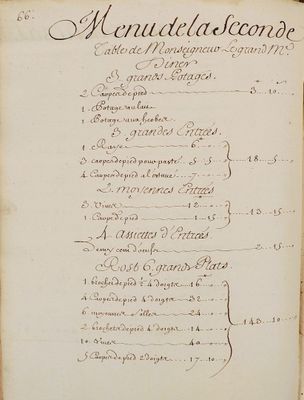 66.
Menu de la Seconde
Table de Monseigneur Le grand Me.
Diner
3 grands Potages.
2 Carpes de pied 3 .. 10
1 Potage au lait
1 Potage aux herbes
3 grandes Entrées.
1 Raye 6
3 carpes de pied pour pasté 5 .. 5 18 .. 5
4 Carpes de pied 7
2 moyennes Entrées
3 Vives 12
1 Carpe de pied 1 .. 15 13 .. 15
4 assiettes d'Entrées.
Demy cent d'œufs 2 .. 15
Rost 6 grands Plats.
1 brochet de pied 4 doigts 16
4 Carpes de pied 4 doigts 32
6 moyennes solles 24
2 brochets de pied 4 doigts 14 143 .. 10
10 Vives 40
5 Carpes de pied 2 doigts 17 .. 10